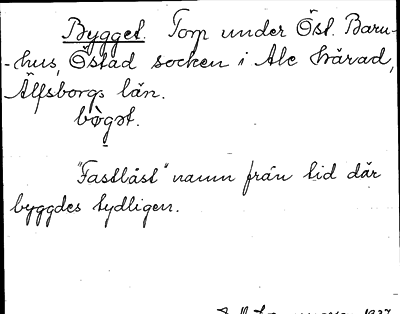 Bygget. Torp under Öst. Baru-
-hus, Östad socken i Ale härad,
Älfsborgs län.
bògət.
"Fastlåst" namn från tid där
byggdes tydligen.
1937